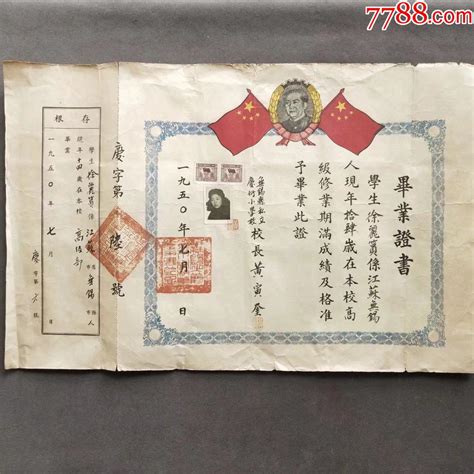 7788.com
畢業證書
學生徐麗係江蘇無錫
人現年拾肆歲在本校高
級修業期滿成績及格准
予畢業此證
無錫縣私立
小學校
校長黃寅
一九五〇年七月 日
慶字第陸號
存根
學生徐麗係江蘇無錫人
現年十四歲在本校高級部
畢業
一九五〇年七月